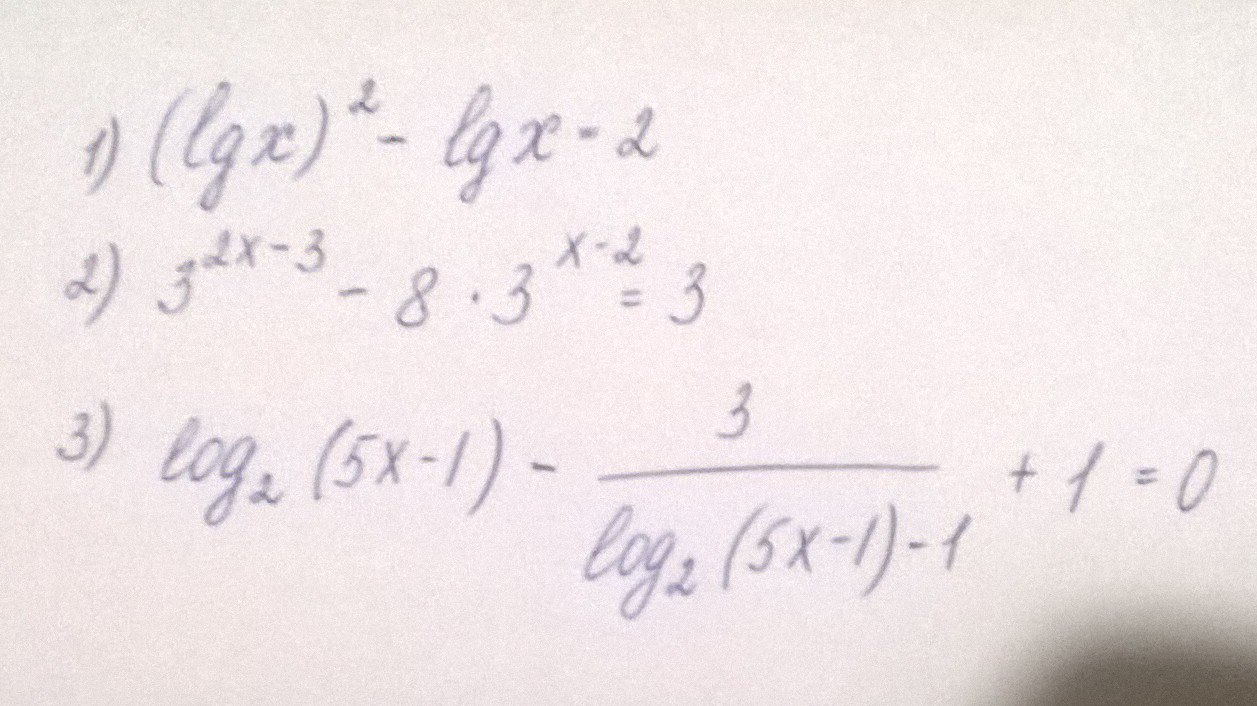 1) (lg x)² - lg x = 2
2) 3^{2x-3} - 8 · 3^{x-2} = 3
3) log₂ (5x-1) - \frac{3}{log₂ (5x-1) - 1} + 1 = 0